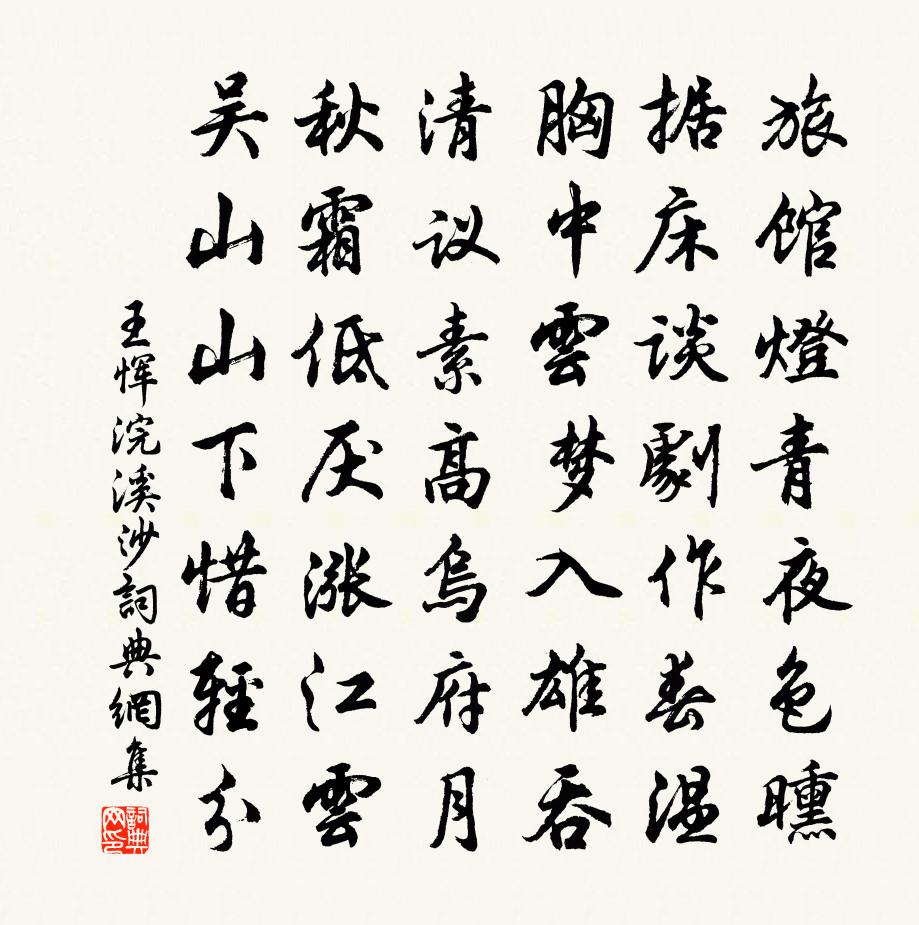 旅馆燈青夜色曛
据床谈劇作春温
胸中雲梦入雄吞
清议素高烏府月
秋霜低厌漲江雲
吴山山下惜輕分
王恽浣溪沙詞典網集
詞典网印